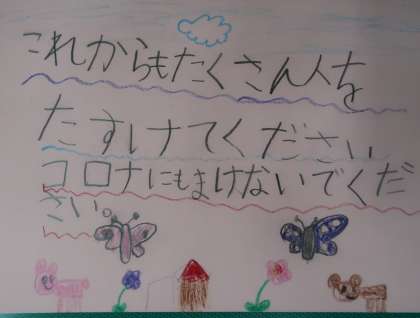 これからもたくさん人を
たすけてください
コロナにもまけないでくだ
さい。